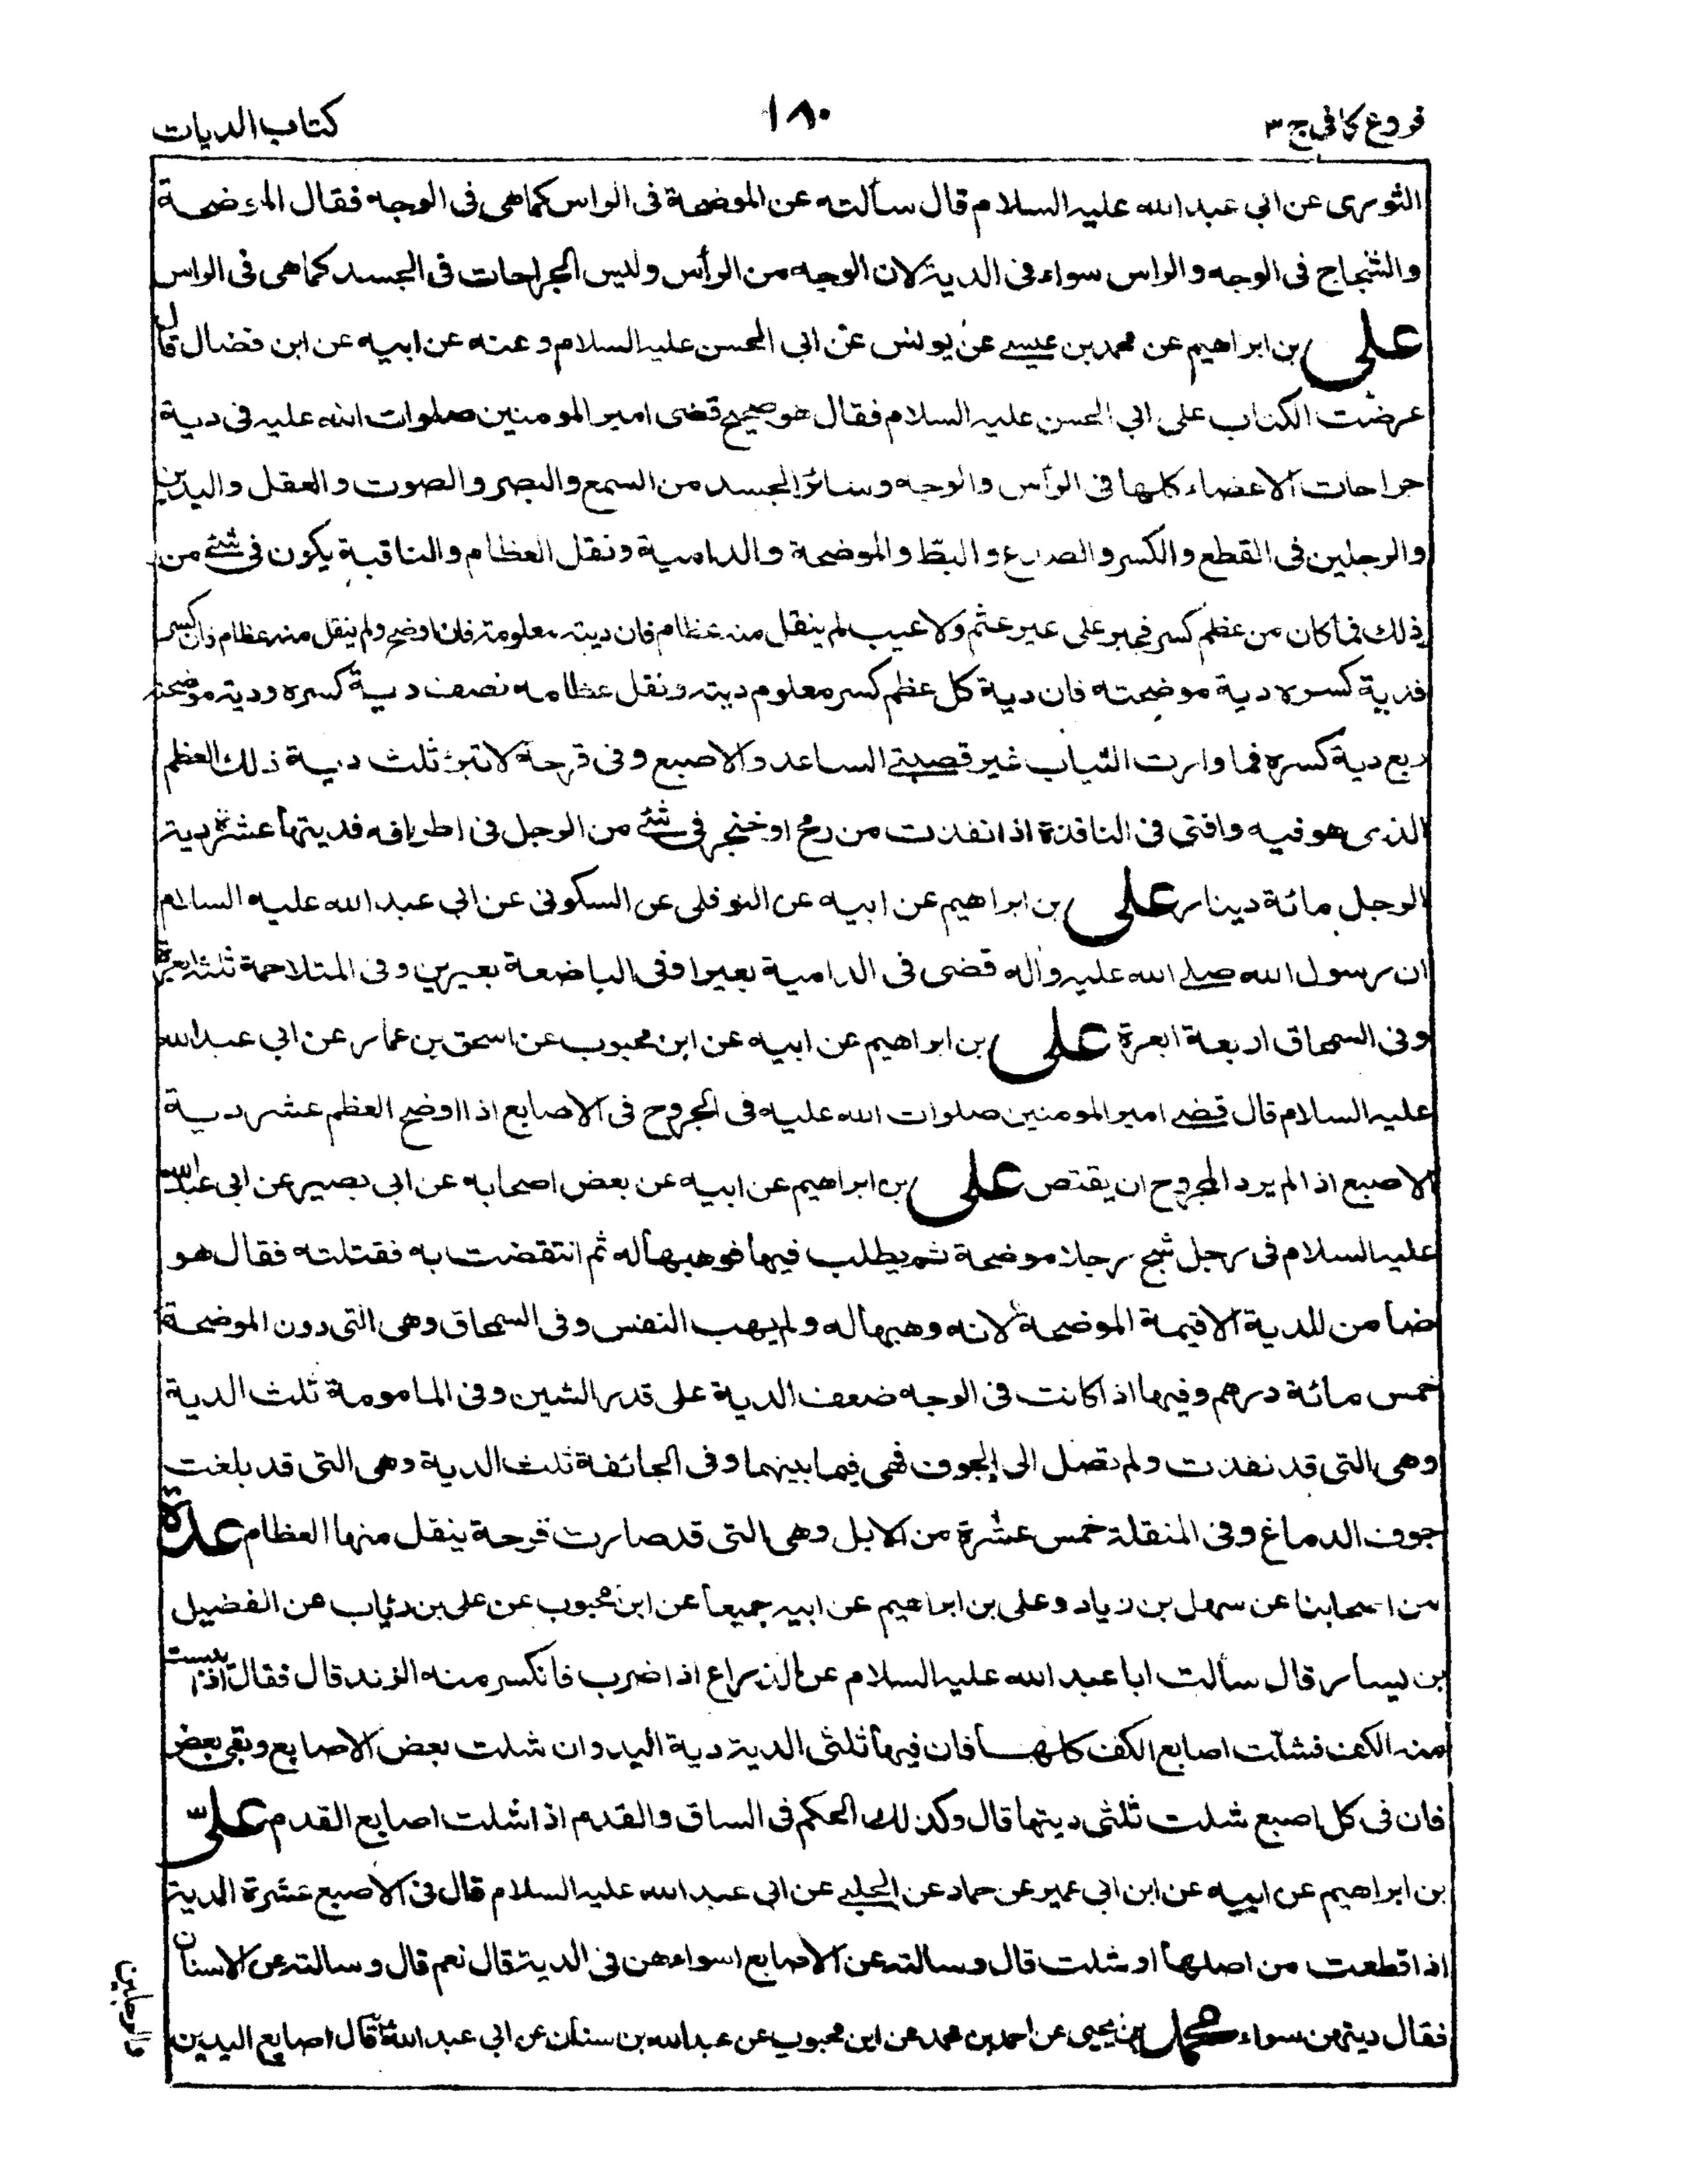 فروع كافي ج ٣
١٨٠
كتاب الديات
الثوري عن ابي عبد الله عليه السلام قال سألته عن الموضحة فى الراس كما هي فى الوجه فقال الموضحة
والشجاج فى الوجه والراس سواء فى الدية لان الوجه من الرأس وليس الجراحات فى الجسد كما هى فى الراس
على بن ابراهيم عن محمد بن عيسے عن يونس عن ابي الحسن عليه السلام وعنه عن ابيه عن ابن فضال قال
عرضت الكتاب على ابي الحسن عليه السلام فقال هو صحيح قضى امير المومنين صلوات الله عليه فى دية
جراحات الاعضاء كلها فى الرأس والوجه وسائر الجسد من السمع والبصر والصوت والعقل واليدين
والرجلين فى القطع والكسر والصدع والبطّ والموضحة والدامية ونقل العظام والناقبة يكون فى شئے من
ذلك فما كان من عظم كسر فجبر على غير عثم ولا عيب لم ينقل منه عظام فان ديته معلومة فان اوضح ولم ينقل منه عظام فان كسر
فدية كسره دية موضحته فان دية كل عظم كسر معلوم ديته ونقل عظامه نصف دية كسره ودية موضحته
ربع دية كسره فما وارت الثياب غير قصبتے الساعد والاصبع وفى قرحة لا تبرئ ثلث دية ذلك العظم
الذى هو فيه وافتى فى النافذة اذا نفذت من رمح او خنجر فى شئے من الرجل فى اطرافه فديتها عشر دية
الرجل مائة دينار على بن ابراهيم عن ابيه عن النوفلى عن السكونى عن ابي عبد الله عليه السلام
ان رسول الله صلے الله عليه وآله قضى فى الدامية بعيرا وفى الباضعة بعيرين وفى المتلاحمة ثلثة ابعرة
وفى السمحاق اربعة ابعرة على بن ابراهيم عن ابيه عن ابن محبوب عن اسحق بن عمار عن ابي عبد الله
عليه السلام قال قضے امير المومنين صلوات الله عليه فى الجروح فى الاصابع اذا اوضح العظم عشر دية
الاصبع اذا لم يرد المجروح ان يقتص على بن ابراهيم عن ابيه عن بعض اصحابه عن ابي بصير عن ابي عبد الله
عليه السلام فى رجل شج رجلا موضحة ثم يطلب فيها فوهبها له ثم انتقضت به فقتلته فقال هو
ضامن للدية الا قيمة الموضحة لانه وهبها له ولم يهب النفس وفى السمحاق وهى التى دون الموضحة
خمس مائة درهم وفيها اذا كانت فى الوجه ضعف الدية على قدر الشين وفى المامومة ثلث الدية
وهى التى قد نفذت ولم تصل الى الجوف فهى فيما بينهما وفى الجائفة ثلث الدية وهى التى قد بلغت
جوف الدماغ وفى المنقلة خمس عشرة من الابل وهى التى قد صارت قرحة ينقل منها العظام عدة
من اصحابنا عن سهل بن زياد وعلى بن ابراهيم عن ابيه جميعا عن ابن محبوب عن على بن رئاب عن الفضيل
بن يسار قال سألت ابا عبد الله عليه السلام عن الذراع اذا ضرب فانكسر منه الزند قال فقال اذا يبست
منه الكف فشلّت اصابع الكف كلها فان فيها ثلثى الدية دية اليد وان شلت بعض الاصابع وبقى بعض
فان فى كل اصبع شلت ثلثى ديتها قال وكذلك الحكم فى الساق والقدم اذا شلت اصابع القدم علىّ
بن ابراهيم عن ابيه عن ابن ابي عمير عن حماد عن الحلبے عن ابي عبد الله عليه السلام قال فى الاصبع عشرة الدية
اذا قطعت من اصلها او شلت قال وسالته عن الاصابع اسواء هن فى الدية قال نعم قال وسالته عن الاسنان
فقال ديتهن سواء محمد بن يحيى عن احمد بن محمد عن ابن محبوب عن عبد الله بن سنان عن ابي عبد الله قال اصابع اليدين
والرجلين